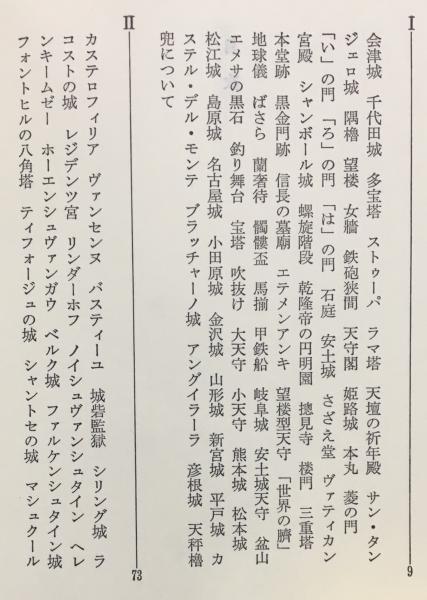 I
会津城　千代田城　多宝塔　ストゥーパ　ラマ塔　天壇の祈年殿　サン・タン
ジェロ城　隅櫓　望楼　女牆　鉄砲狭間　天守閣　姫路城　本丸　菱の門
「い」の門　「ろ」の門　「は」の門　石庭　安土城　さざえ堂　ヴァティカン
宮殿　シャンボール城　螺旋階段　乾隆帝の円明園　摠見寺　楼門　三重塔
本堂跡　黒金門跡　信長の墓廟　エテメンアンキ　望楼型天守　「世界の臍」
地球儀　ばさら　蘭奢待　髑髏盃　馬揃　甲鉄船　岐阜城　安土城天守　盆山
エメサの黒石　釣り舞台　宝塔　吹抜け　大天守　小天守　熊本城　松本城
松江城　島原城　名古屋城　小田原城　金沢城　山形城　新宮城　平戸城　カ
ステル・デル・モンテ　ブラッチャーノ城　アングイラーラ　彦根城　天秤櫓
兜について
9
II
カステロフィリア　ヴァンセンヌ　バスティーユ　城砦監獄　シリング城　ラ
コストの城　レジデンツ宮　リンダーホフ　ノイシュヴァンシュタイン　ヘレ
ンキームゼー　ホーエンシュヴァンガウ　ベルク城　ファルケンシュタイン城
フォントヒルの八角塔　ティフォージュの城　シャントセの城　マシュクール
73